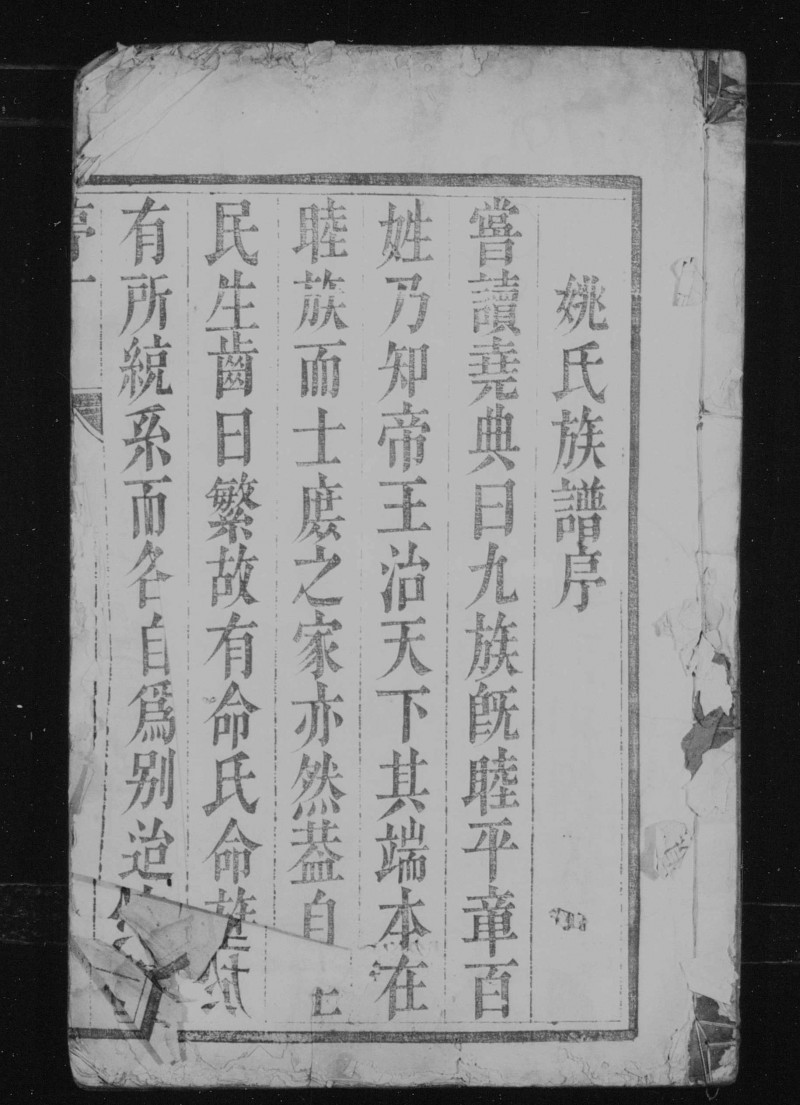 姚氏族譜序
嘗讀堯典曰九族旣睦平章百
姓乃知帝王治天下其端本在
睦族而士庶之家亦然葢自
民生齒日繁故有命氏命族
有所統系而各自爲别迨